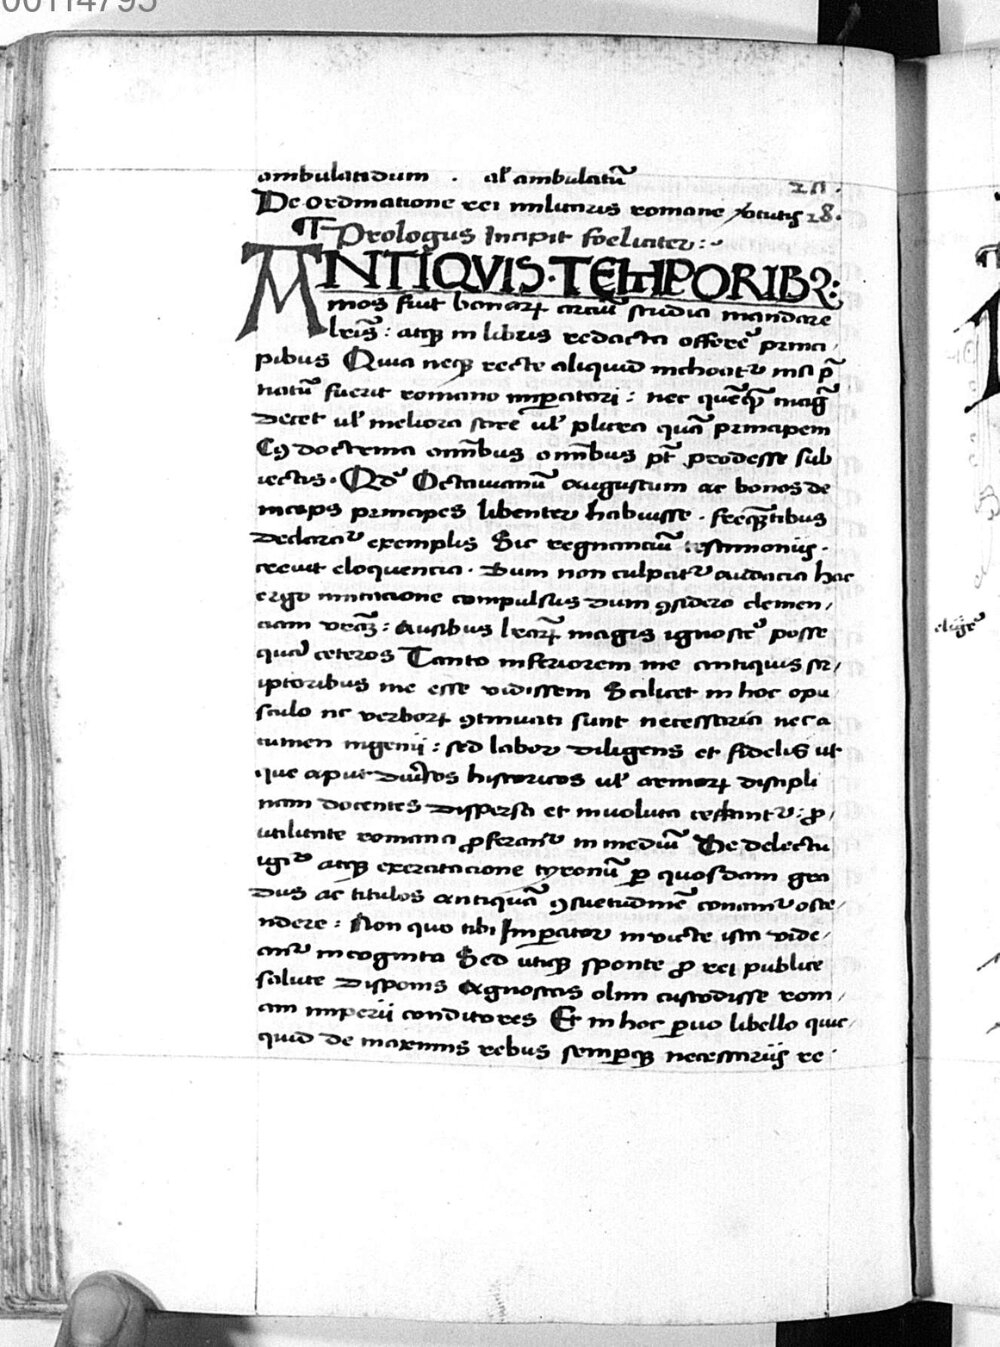 00114795
ambulandum . al' ambulatū 27.
De ordinatione rei militaris romane virtutis 28.
¶ Prologus Incipit foeliciter :~
ANTIQVIS·TEMPORIBꝫ:
mos fuit bonarꝝ arciū studia mandare
lrīs : atqꝫ in libris redacta offerrē prīnci/
pibus Quia neqꝫ recte aliquid inchoat᷑ nisi p̄
natū fuerit romano imꝑatori : nec quēqꝫ magꝭ
decet ul' meliora scire ul' plura quā principem
Cꝰ doctrina omībus omībus pt̄ prodesse sub
iectis. Qd' Octauianū augustum ac bonos de
inceps principes libenter habuisse . freqꝫntibus
declarat᷑ exemplis Sic regnanciū testimoniis .
creuit eloquencia . Dum non culpat᷑ audacia hac
ergo imitacione compulsus dum ꝯsidero clemen/
ciam vr̄aꝫ : Ausibus lr̄arꝝ magis ignosce' posse
quā ceteros Tanto inferiorem me antiquis scr/
iptoribus me esse vidissem Scilicet in hoc opu
sculo nc verborꝝ ꝯtinuati sunt necessaria nec a
cumen ingenij : sed labor diligens et fidelis ut
que aput diūsos historicos ul' armorꝝ discipli
nam docentes dispersa et inuoluta cessant᷑ : ꝓ/
utilitate romana ꝓferant᷑ in mediū De delectu
igit᷑ atqꝫ exercitacione tyronū ꝑ quosdam gra
dus ac titulos antiquā ꝯsuetudinē conam᷑ oste/
ndere : Non quo tibi Imꝑator inuicte ista vide/
ant᷑ incognita Sed utiqꝫ sponte ꝓ rei publice
salute disponis Agnoscas olim custodisse rom/
am imperii conditores Et in hoc ꝑuo libello quic/
quid de maximis rebus semꝑqꝫ necessariis re